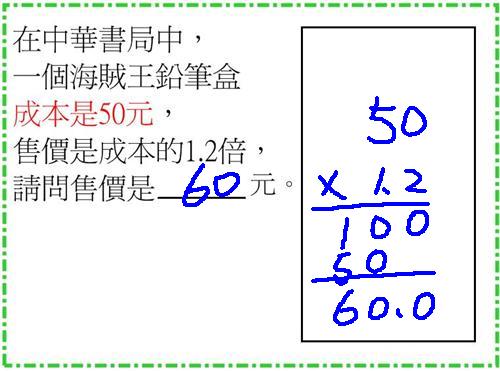 在中華書局中，
一個海賊王鉛筆盒
成本是50元，
售價是成本的1.2倍，
請問售價是60元。
50
x 1.2
100
50
60.0